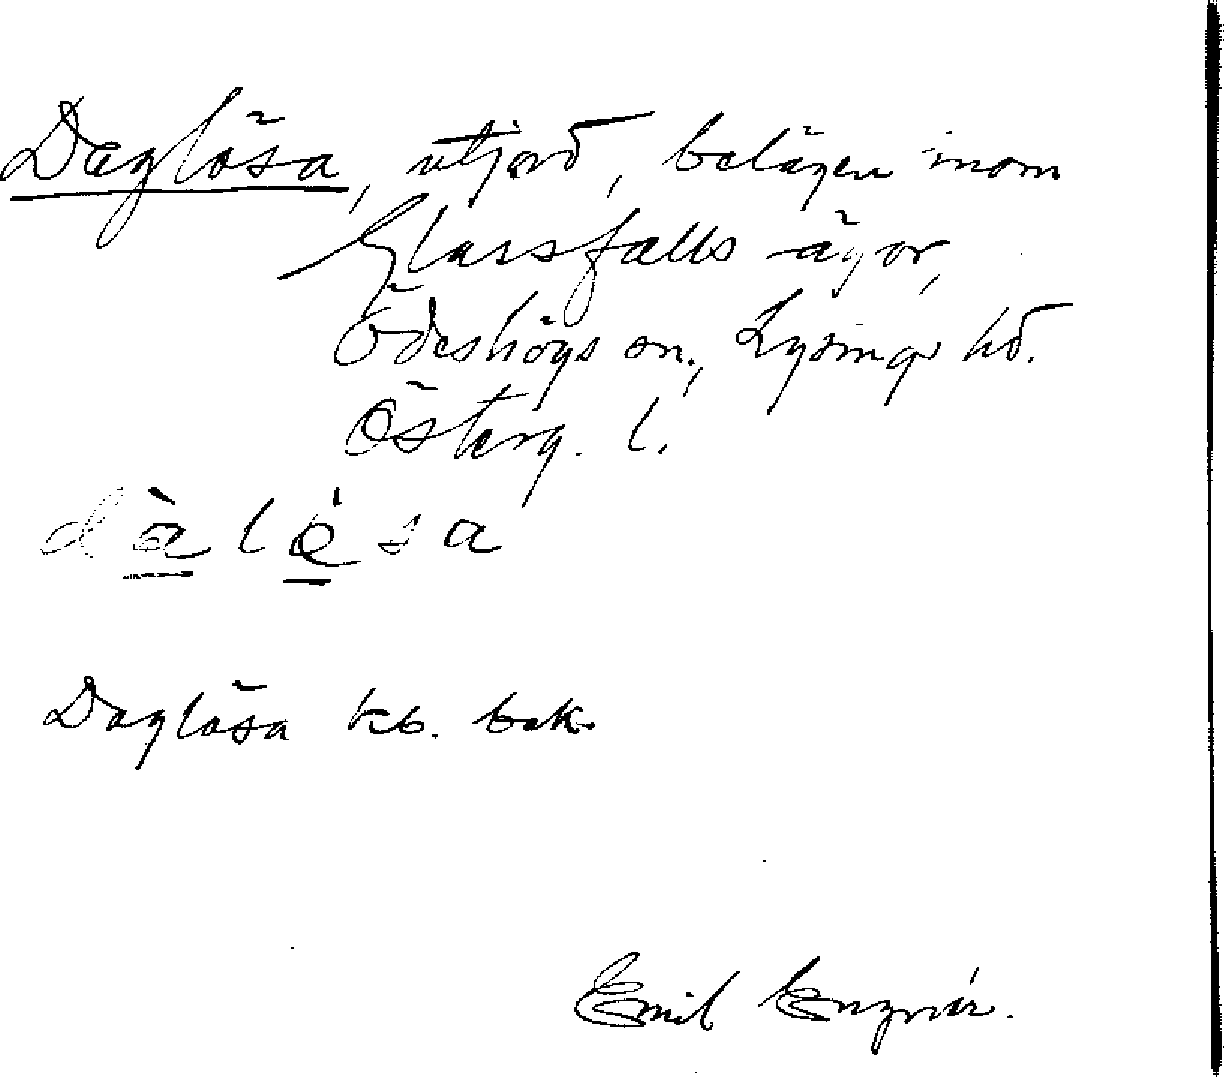 Daglösa, utjord, belägen inom
Glassfalls ägor,
Ödeshögs sn., Lysings hd.
Österg. l.
dàlǿsa
Daglösa kb. bok.
Emil